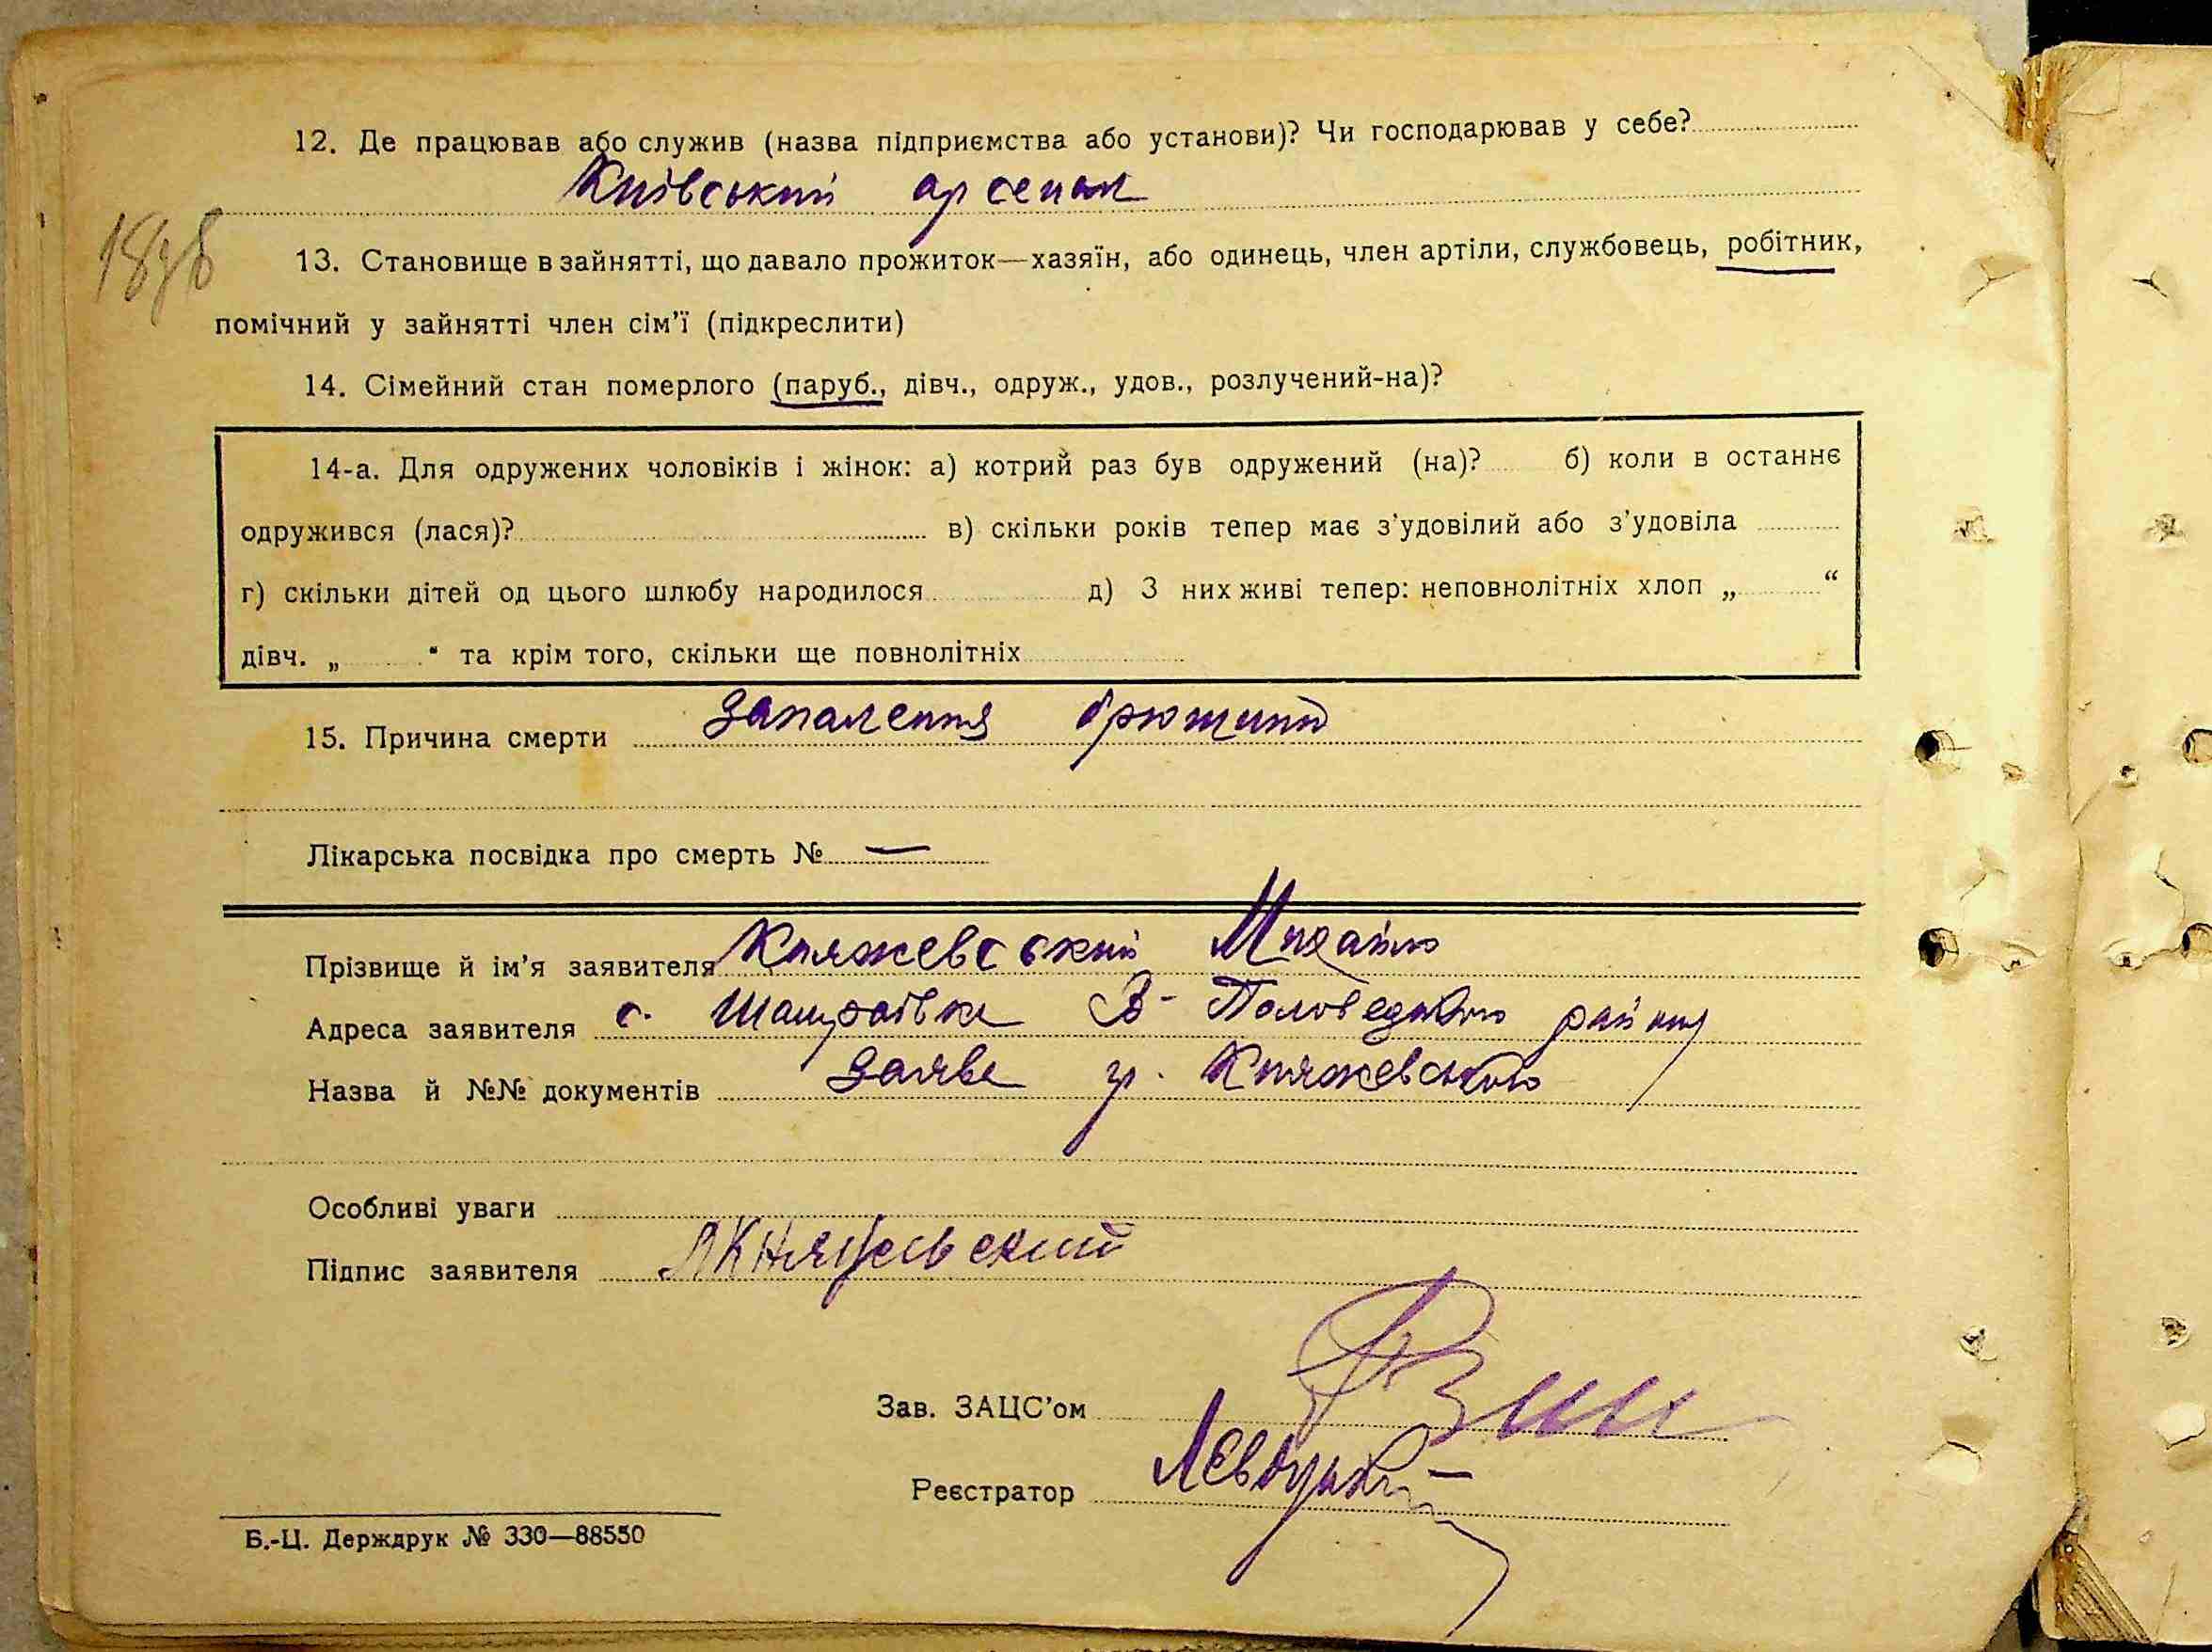 12. Де працював або служив (назва підприємства або установи)? Чи господарював у себе?
Київський арсенал
13. Становище в зайнятті, що давало прожиток—хазяїн, або одинець, член артіли, службовець, робітник,
помічний у зайнятті член сім'ї (підкреслити)
14. Сімейний стан померлого (паруб., дівч., одруж., удов., розлучений-на)?
14-а. Для одружених чоловіків і жінок: а) котрий раз був одружений (на)? б) коли в останнє
одружився (лася)? в) скільки років тепер має з'удовілий або з'удовіла
г) скільки дітей од цього шлюбу народилося д) З них живі тепер: неповнолітніх хлоп „ “
дівч. „ “ та крім того, скільки ще повнолітніх
15. Причина смерти запалення брюшини
Лікарська посвідка про смерть № —
Прізвище й ім'я заявителя Княжевський Михайло
Адреса заявителя с. Шамраївка В-Половецького району
Назва й №№ документів заява гр. Княжевського
Особливі уваги
Підпис заявителя Княжевский
Зав. ЗАЦС'ом
Реєстратор
Б.-Ц. Держдрук № 330—88550